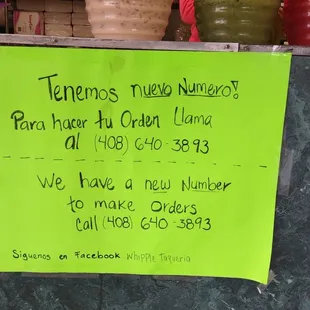 Tenemos nuevo Numero!
Para hacer tu Orden Llama
al (408) 640-3893
We have a new Number
to make orders
call (408) 640-3893
Siguenos en Facebook Whipple Taqueria